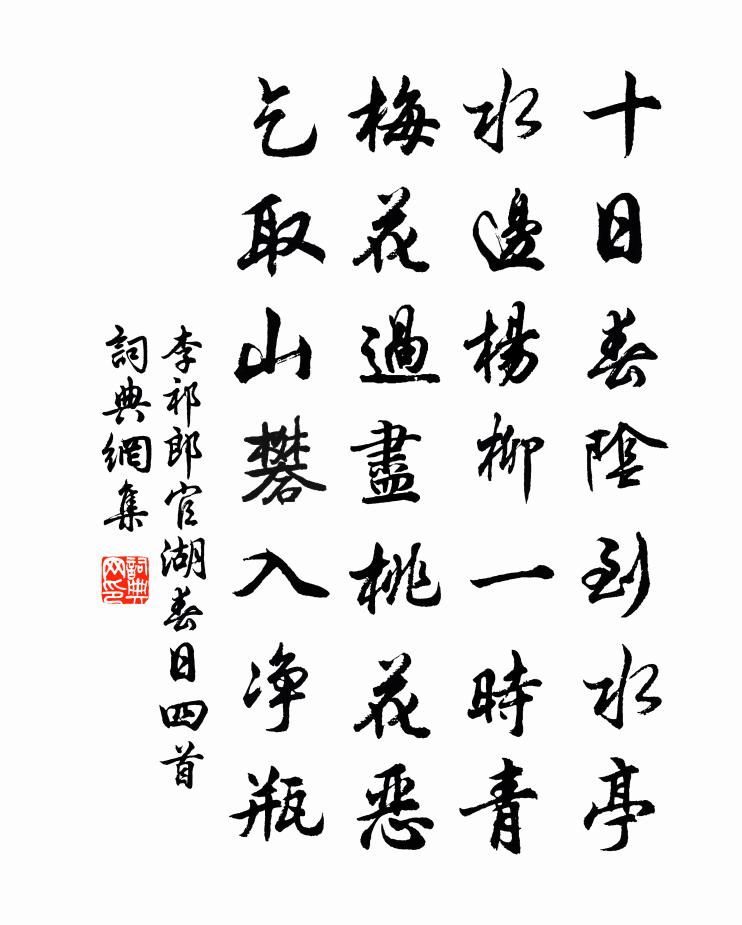 十日春陰到水亭
水邊楊柳一時青
梅花過盡桃花惡
乞取山礬入净瓶
李祁郎官湖春日四首
詞典網集
詞典網印